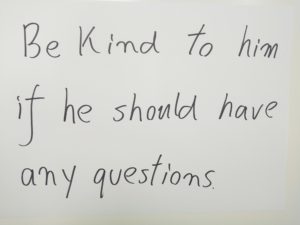 Be Kind to him
if he should have
any questions.